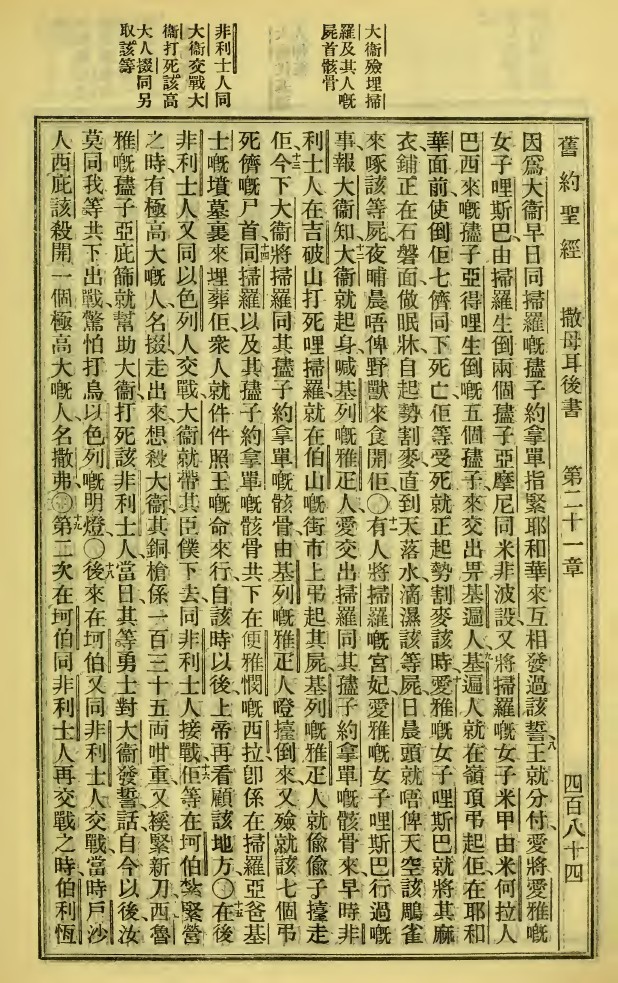 大衞殮埋掃
羅及其人嘅
屍首骸骨
非利士人同
大衞交戰大
衞打死該高
大人掇同另
取該等
舊約聖經 撒母耳後書 第二十一章 四百八十四
因爲大衞早日同掃羅嘅孻子約拿單指緊耶和華來互相發過該誓八王就分付愛將愛雅嘅
女子哩斯巴由掃羅生倒兩個孻子亞摩尼同米非波設又將掃羅嘅女子米甲由米何拉人
巴西來嘅孻子亞得哩生倒嘅五個孻子九來交出畀基遍人基遍人就在嶺項弔起佢在耶和
華面前使倒佢七儕同下死亡佢等受死就正起勢割麥該時十愛雅嘅女子哩斯巴就將其麻
衣鋪正在石磐面做眠牀自起勢割麥直到天落水滴濕該等屍日晨頭就唔俾天空該鵰雀
來啄該等屍夜晡晨唔俾野獸來食開佢〇十一有人將掃羅嘅宮妃愛雅嘅女子哩斯巴行過嘅
事報大衞知十二大衞就起身喊基列嘅雅疋人愛交出掃羅同其孻子約拿單嘅骸骨來早時非
利士人在吉破山打死哩掃羅就在伯山嘅街市上弔起其屍基列嘅雅疋人就偸偸子擡走
佢十三今下大衞將掃羅同其孻子約拿單嘅骸骨由基列嘅雅疋人噔擡倒來又殮就該七個弔
死儕嘅尸首十四同掃羅以及其孻子約拿單嘅骸骨共下在便雅憫嘅西拉卽係在掃羅亞爸基
士嘅墳墓裏來埋葬佢衆人就件件照王嘅命來行自該時以後上帝再看顧該地方〇十五在後
非利士人又同以色列人交戰大衞就帶其臣僕下去同非利士人接戰十六佢等在坷伯紮緊營
之時有極高大嘅人名掇走出來想殺大衞其銅槍係一百三十五両咁重又𢹂緊新刀十七西魯
雅嘅孻子亞庇篩就幫助大衞打死該非利士人當日其等勇士對大衞發誓話自今以後汝
莫同我等共下出戰驚怕打烏以色列嘅明燈〇十八後來在坷伯又同非利士人交戰當時戶沙
人西庇該殺開一個極高大嘅人名撒弗〇十九第二次在坷伯同非利士人再交戰之時伯利恆